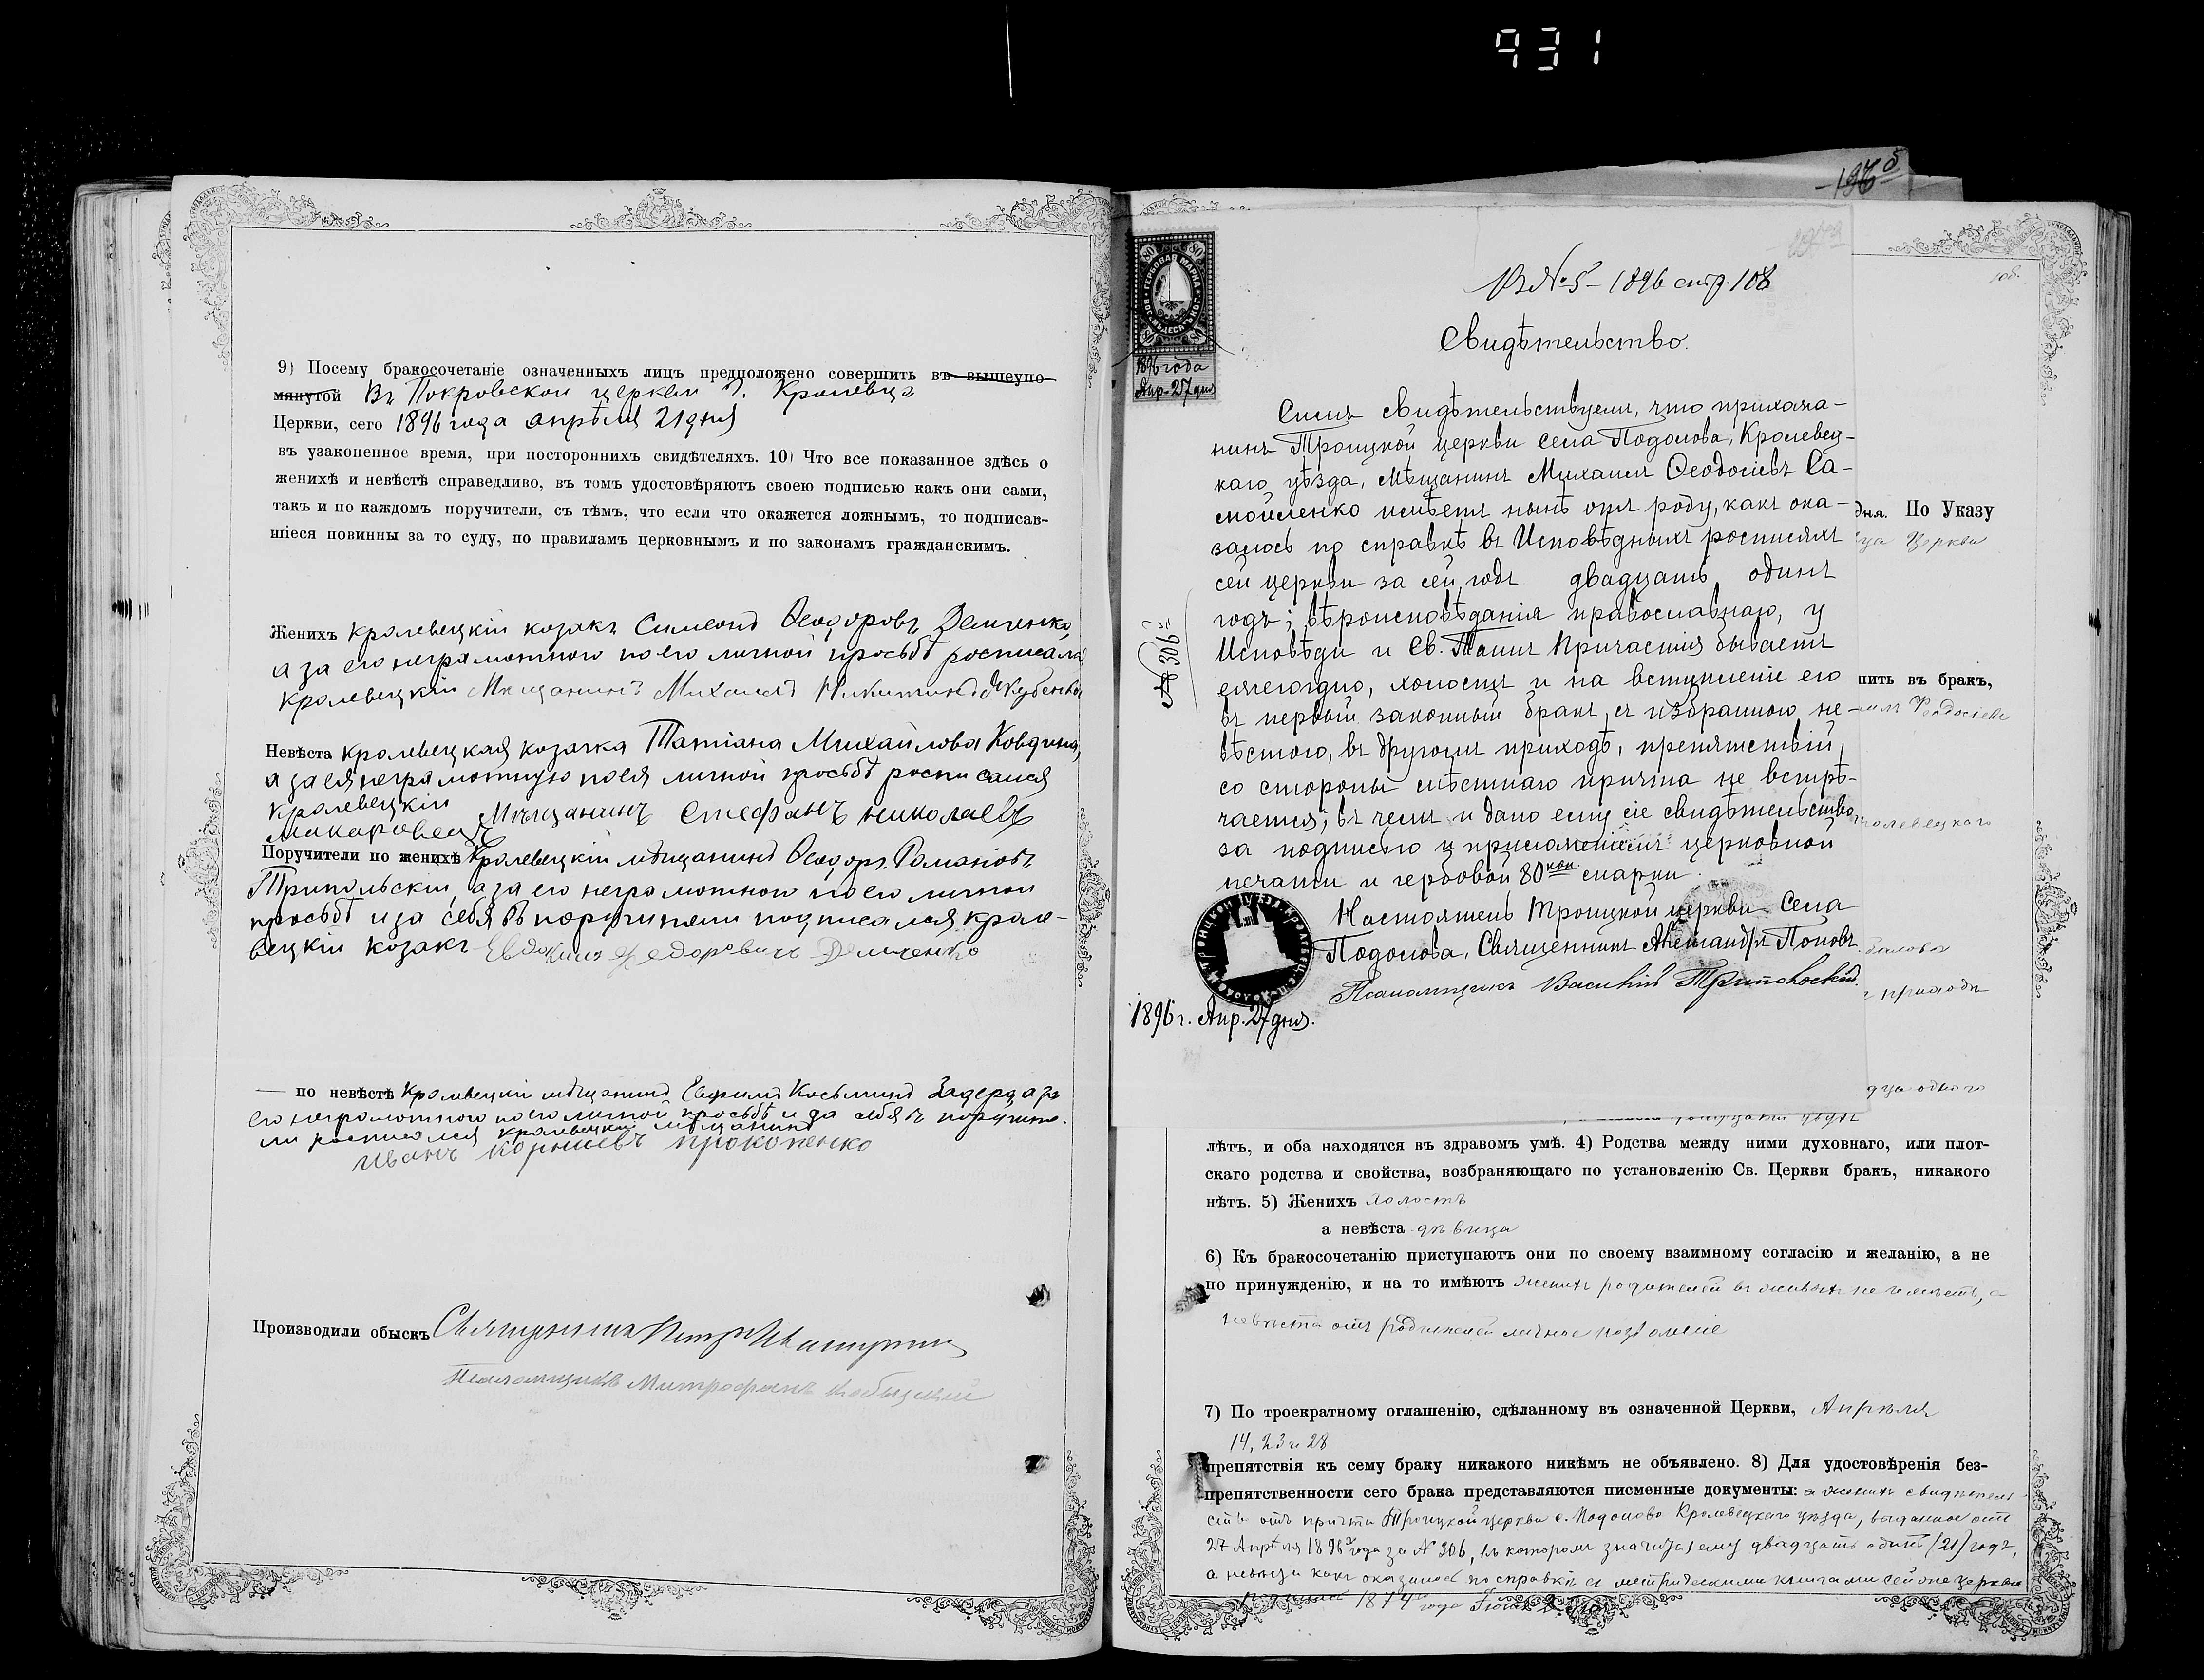 931
9) Посему бракосочетаніе означенныхъ лицъ предположено совершить въ вышеупо-
мянутой Въ Покровской церкви г. Кролевца
Церкви, сего 1896 года апрѣля 21 дня
въ узаконенное время, при постороннихъ свидѣтеляхъ. 10) Что все показанное здѣсь о
женихѣ и невѣстѣ справедливо, въ томъ удостовѣряютъ своею подписью какъ они сами,
такъ и по каждомъ поручители, съ тѣмъ, что если что окажется ложнымъ, то подписав-
шіеся повинны за то суду, по правиламъ церковнымъ и по законамъ гражданскимъ.
Женихъ кролевецкій козакъ Симеонъ Ѳеодоровъ Демченко,
а за его неграмотного по его личной просьбѣ росписался
кролевецкій Мещанинъ Михаилъ Никитинъ
Невѣста кролевецкая козачка Татіана Михайлова
а за ея неграмотную по ея личной просьбѣ росписался
кролевецкій Мѣщанинъ Стефанъ Николаевъ
Макаровецъ
Поручители по женихѣ Кролевецкій мѣщанинъ Ѳеодоръ Романовъ
Трипольскій, а за его неграмотного по его личной
просьбѣ и за себя въ поручители подписался кроле-
вецкій козакъ Евдокимъ Федоровичъ Демченко
— по невѣстѣ Кролевецкій мѣщанинъ Евфимій Косьминъ а за
его неграмотного по его личной просьбѣ и за себя въ поручите-
ли росписался кролевецкій мѣщанинъ
Иванъ Корніевъ прокопенко
Производили обыскъ Священникъ Петръ
Псаломщикъ Митрофанъ
196 б
108
В № 5 – 1896 стр. 108
80 ГЕРБОВАЯ МАРКА 80
ВОСЕМЬДЕСЯТЪ КОП.
1896 года
Апр. 27 дня
Свидѣтельство.
Симъ свидѣтельствуемъ, что прихожа-
нинъ Троицкой церкви села Подолова, Кролевец-
каго уѣзда, мѣщанинъ Михаилъ Ѳеодосіевъ Са-
мойленко имѣетъ нынѣ отъ роду, какъ ока-
залось по справкѣ въ Исповѣдныхъ росписяхъ
сей церкви за сей годъ двадцать одинъ
годъ; вѣроисповѣданія православнаго, у
Исповѣди и Св. Таинъ Причастія бываетъ
ежегодно, холостъ и на вступленіе его
въ первый законный бракъ, съ избранною не-
вѣстою, въ другомъ приходѣ, препятствій,
со стороны мѣстнаго причта не встрѣ-
чается; въ чемъ и дано ему сіе свидѣтельство
за подписью и приложеніемъ церковной
печати и гербовой 80 коп. марки.
№ 306
Настоятель Троицкой церкви Села
Подолова, Священникъ Александръ Поповъ.
Псаломщикъ Василій Трипольскій.
1896 г. Апр. 27 дня.
дня. По Указу
Церкви
пить въ бракъ,
Ѳеодосіевъ
приходи
одного
лѣтъ, и оба находятся въ здравомъ умѣ. 4) Родства между ними духовнаго, или плот-
скаго родства и свойства, возбраняющаго по установленію Св. Церкви бракъ, никакого
нѣтъ. 5) Женихъ холостъ
а невѣста дѣвица
6) Къ бракосочетанію приступаютъ они по своему взаимному согласію и желанію, а не
по принужденію, и на то имѣютъ женихъ родителей въ живыхъ не имѣетъ, а
невѣста отъ родителей личное позволеніе
7) По троекратному оглашенію, сдѣланному въ означенной Церкви, Апрѣля
14, 23 и 28
препятствія къ сему браку никакого никѣмъ не объявлено. 8) Для удостовѣренія без-
препятственности сего брака представляются писменные документы: а женихъ свидѣтель
ство отъ причта Троицкой церкви с. Подолова Кролевецкаго уѣзда, выданное отъ
27 Апрѣля 1896 года за № 306, въ которомъ значится ему двадцать одинъ (21) годъ,
а невѣста какъ оказалось по справкѣ съ метрическими книгами сей же церкви
1874 года Іюня